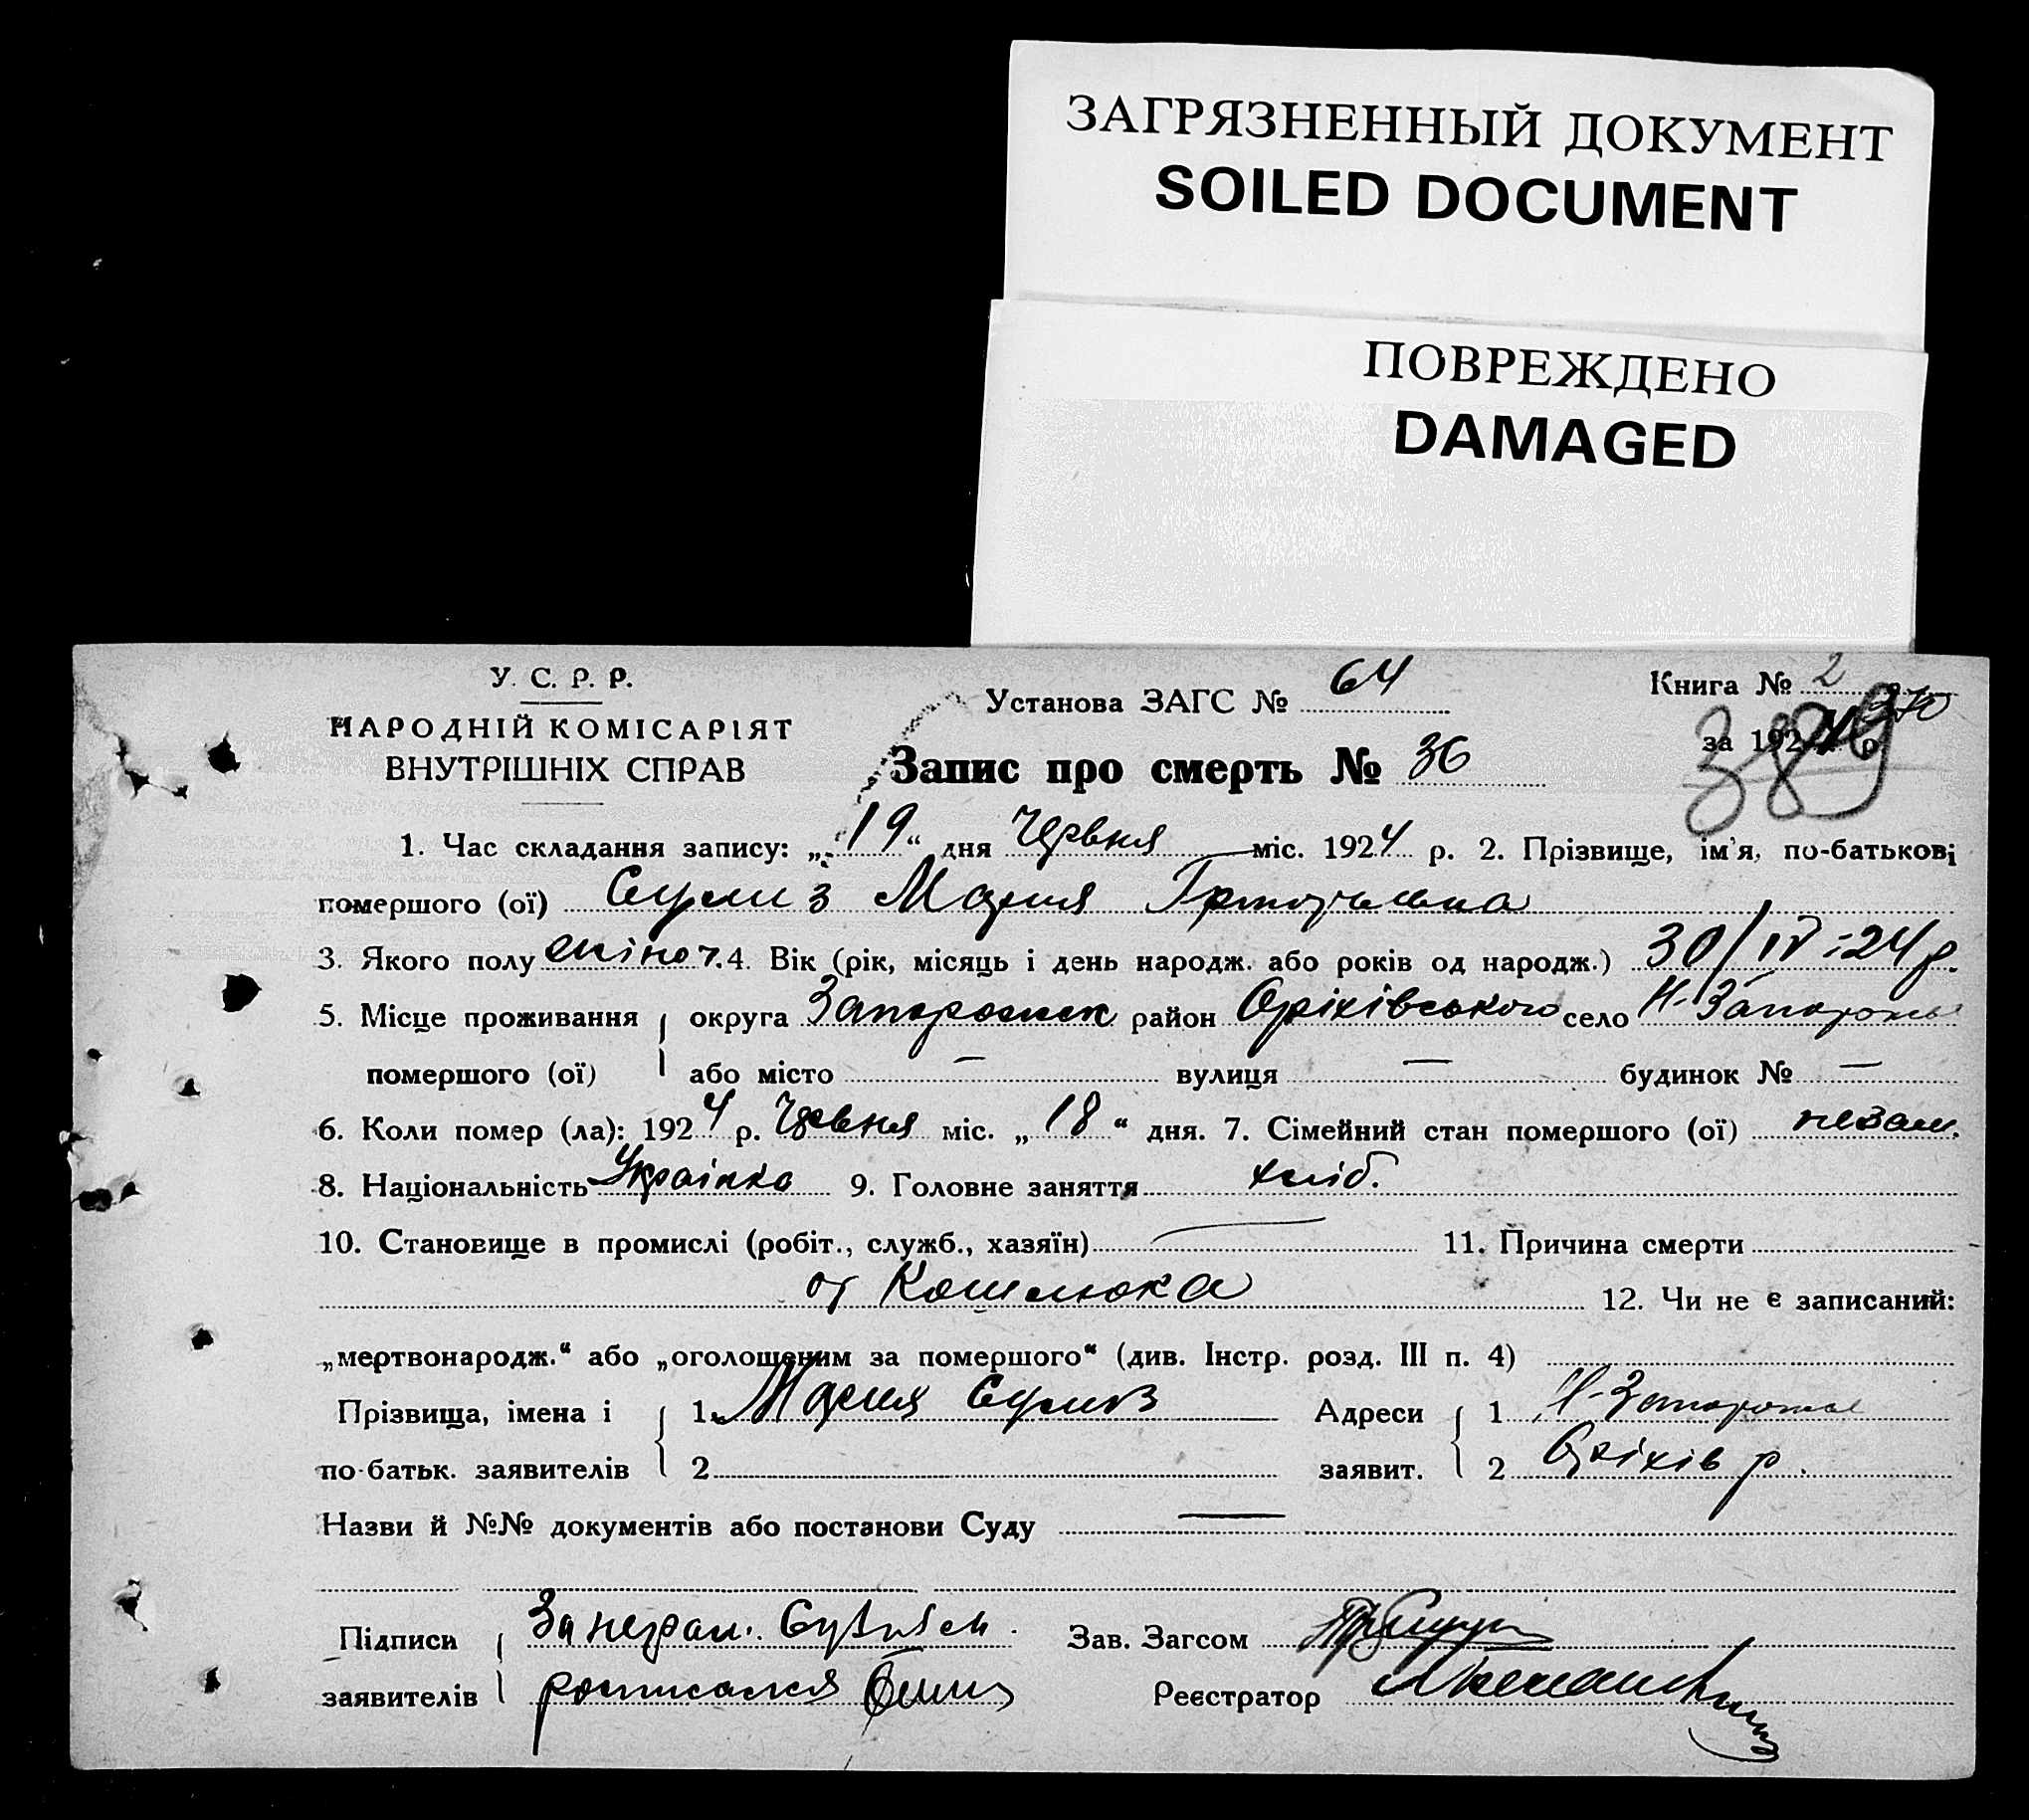 ЗАГРЯЗНЕННЫЙ ДОКУМЕНТ
SOILED DOCUMENT
ПОВРЕЖДЕНО
DAMAGED
У. С. Р. Р.
НАРОДНІЙ КОМІСАРІЯТ
ВНУТРІШНІХ СПРАВ
Установа ЗАГС № 64
Книга № 2
370
за 1924 р.
389
Запис про смерть № 36
1. Час складання запису: „19“ дня Червня міс. 1924 р. 2. Прізвище, ім'я, по-батькові
помершого (ої) Мария
3. Якого полу жіноч. 4. Вік (рік, місяць і день народж. або років од народж.) 30/IV-24 р.
5. Місце проживання округа Запорожск район Оріхівського село Н-Запорожье
помершого (ої) або місто — вулиця — будинок № —
6. Коли помер (ла): 1924 р. Червня міс. „18“ дня. 7. Сімейний стан помершого (ої) незам.
8. Національність Українка 9. Головне заняття хліб.
10. Становище в промислі (робіт., служб., хазяїн) — 11. Причина смерти
от Кошлюка 12. Чи не є записаний:
„мертвонародж.“ або „оголошеним за помершого“ (див. Інстр. розд. III п. 4)
Прізвища, імена і 1. Мария Адреси 1 Н-Запорожье
по-батьк. заявителів 2 заявит. 2 Оріхів р.
Назви й №№ документів або постанови Суду —
Підписи За неграм. Зав. Загсом
заявителів росписался Реєстратор